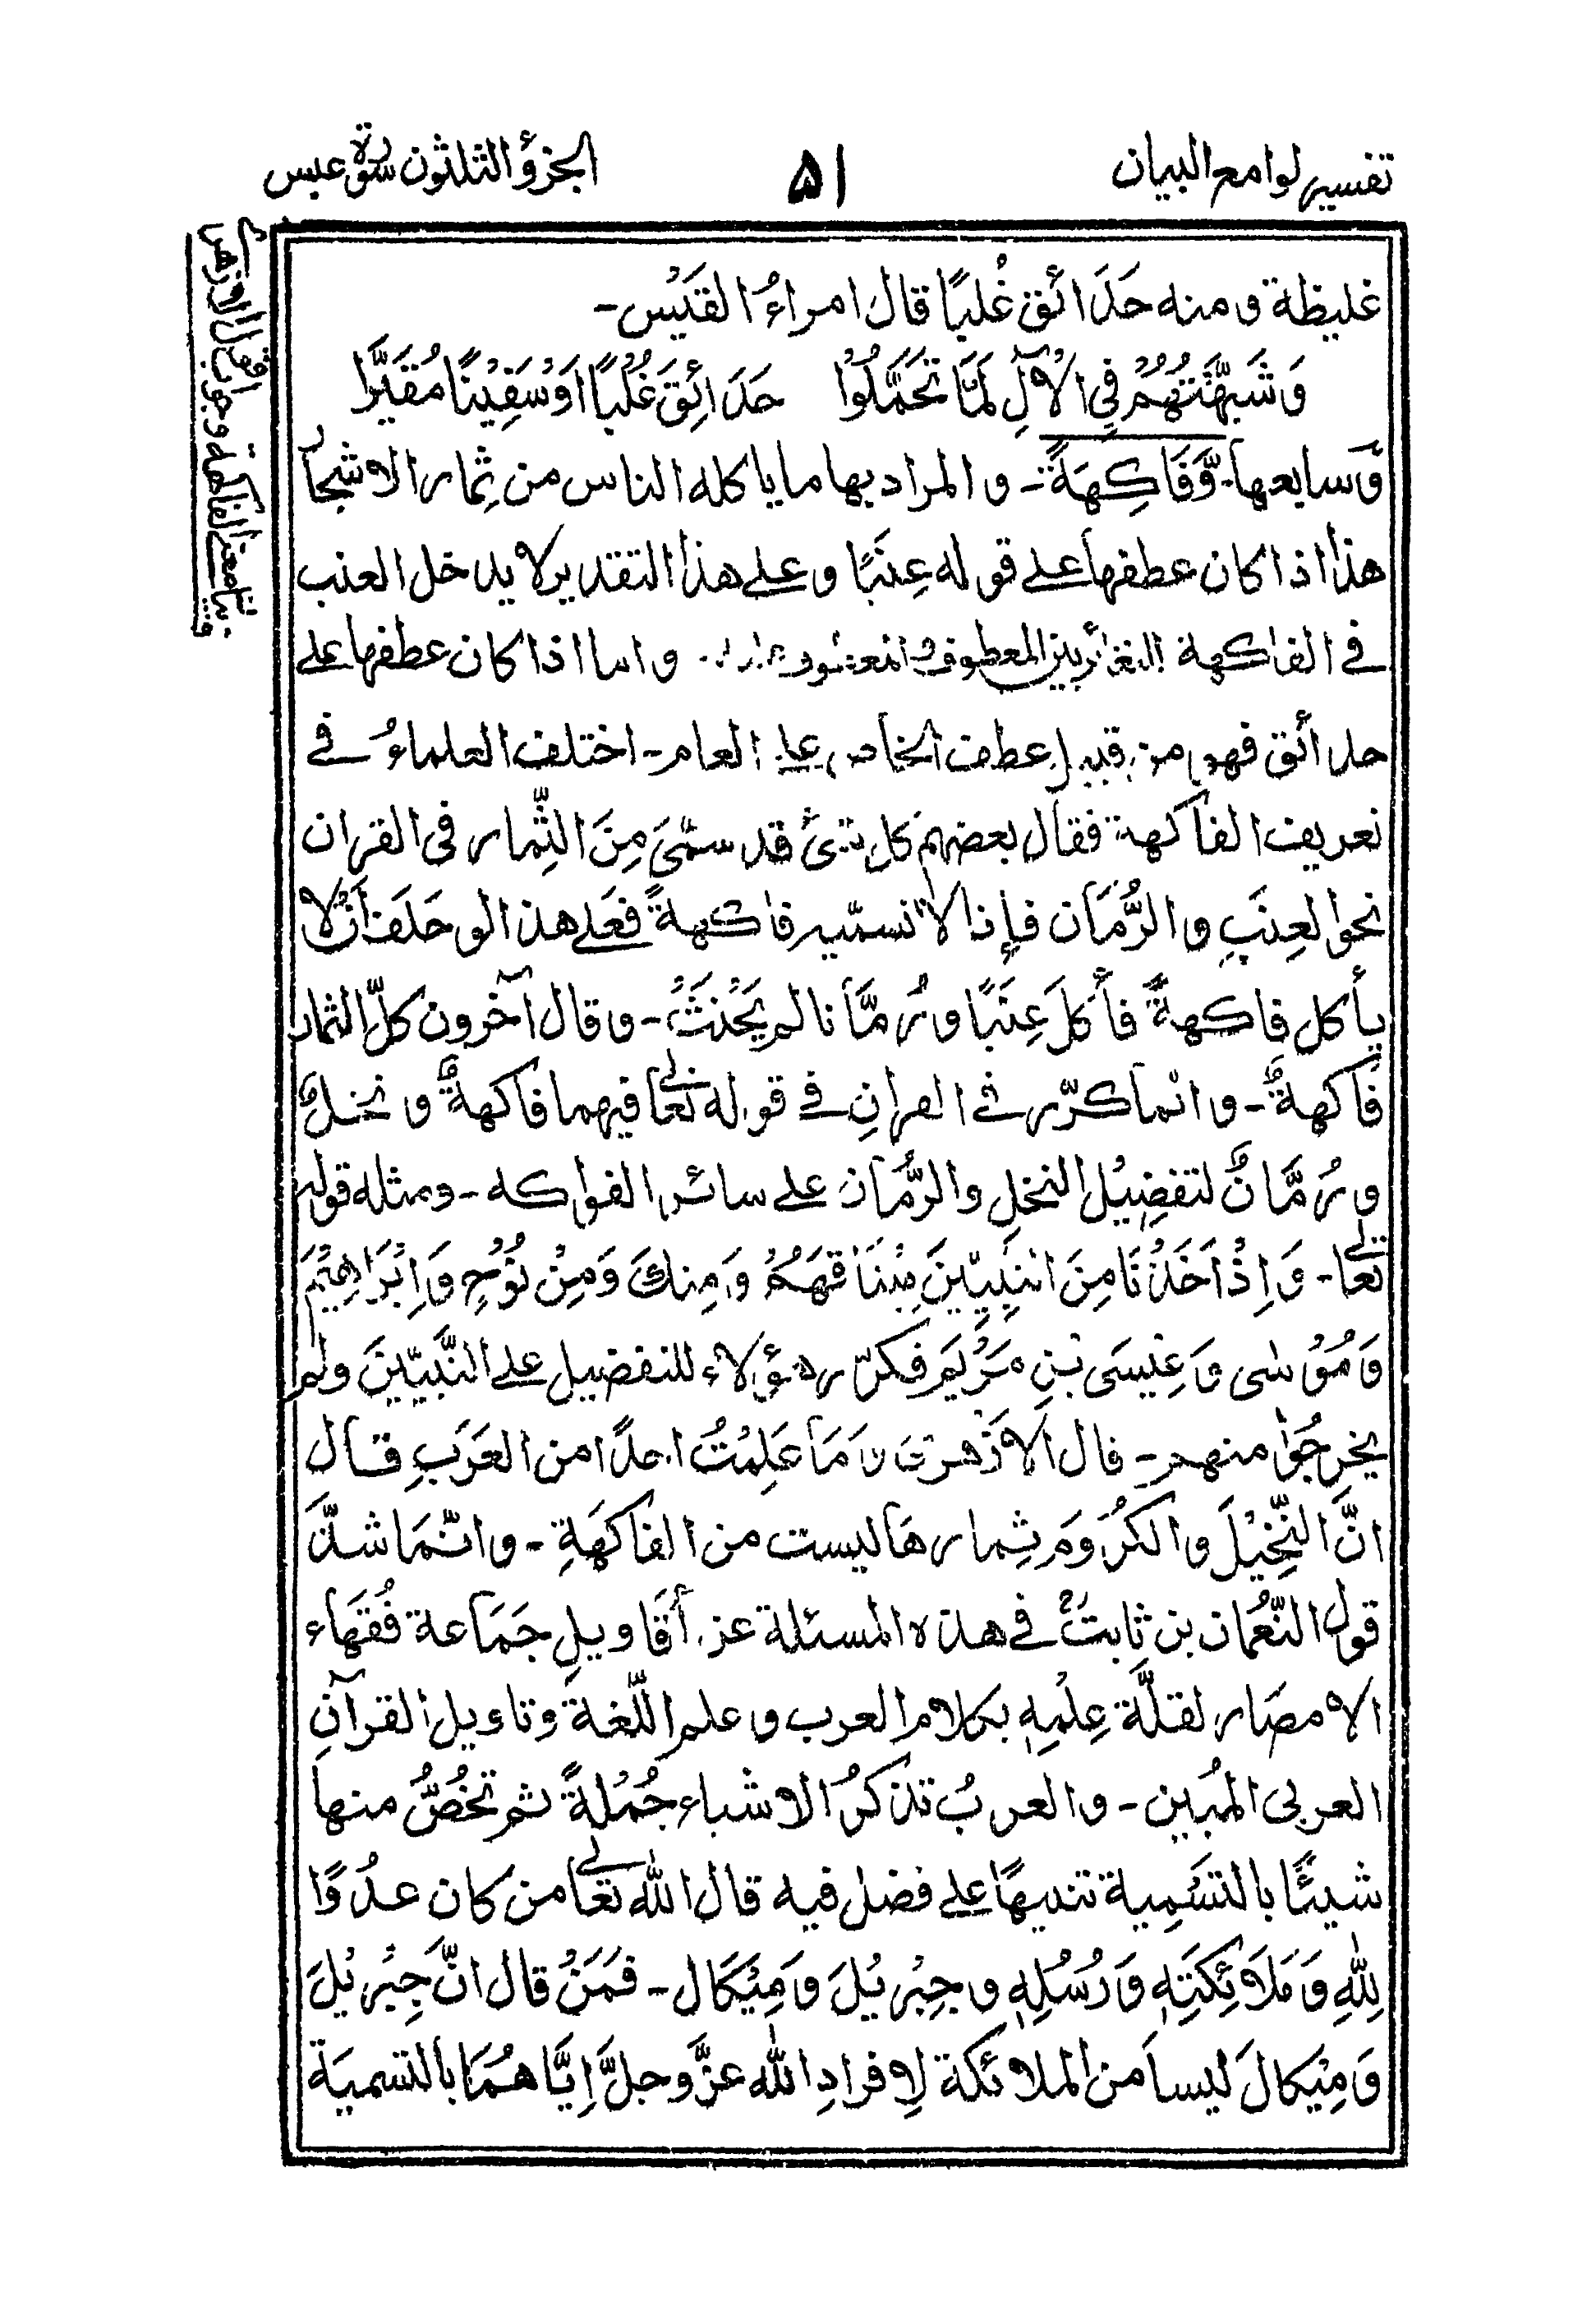 تفسير لوامع البيان ۵۱ الجزؤ الثلثون سورة عبس
غليظة ومنه حَدَائق غُلبًا قال امراءُ القَيْس-
وَشَبَّهْتُهُمْ فِي الْآلِ لَمَّا تَحَمَّلُوْا حَدَائِقَ غُلْبًا اَوْ سَفِيْنًا مُقَيَّرًا
وَسابعها- وَّفَاكِهَةً- والمراد بها ما ياكله الناس من ثِمار الاشجار
هذا اذا كان عطفها على قوله عِنَبًا وعلى هذا التقدير لا يدخل العنب
فى الفاكهة للتغائر بين المعطوف والمعطوف واما اذا كان عطفها على
حدائق فهو من قبيل عطف الخاص على العام- اختلف العلماءُ فى
تعريف الفاكهة فقال بعضهم كل شئ قد سمّىَ مِنَ الثِّمار فى القران
نحو العِنَبِ والرُّمَان فإذا لا نسمّيه فاكهةً فعَلى هذا لو حَلَف أنْ لا
يأكل فاكهةً فأَكلَ عِنَبًا ورُمَّانا لم يَحْنَثْ- وقال آخرون كلّ الثمار
فاكهةٌ- وانما كرّر فى القرانِ فى قوله تعالى فيهما فاكهةٌ ونخلٌ
ورُمَّانٌ لتفضِيْل النخلِ والرُّمان على سائر الفواكه- ومثله قوله
تعالى- وَاِذْ اَخَذْنَا مِنَ النَّبِيّيْنَ مِيْثَاقَهَمُْ وَمِنكَ وَمِنْ نُوْحٍ وَاِبْرَاهِيْمَ
وَمُوْسٰى وَعِيْسَى بْنِ مَرْيَم فكرّر هؤلاء للتفضيل على النَّبيّينَ ولم
يخرجُوا منهم- قال الازهرى مَا عَلِمْتُ احدًا من العَرَبِ قال
انَّ النَّخِيْلَ والكرُومَ ثِمارهَا ليست من الفاكهَةِ- وانّمَا شذَّ
قول النّعْمان بن ثابتٌ فى هذه المسئلة عن أقَاويلِ جَمَاعة فُقَهَاء
الامصَار لقلَّة عِلْمِهٖ بكلام العرب وعلم اللّغة وتاويل القرآنِ
العربى المُبِين- والعربُ تذكرُ الاشياء جُمْلةً ثم تخُصُّ منها
شيئًا بالتسَّمِية تنبيهًا على فضل فيه قال الله تعالى من كان عدُوًّا
لِلّٰهِ وَمَلَائِكَتِهٖ وَرُسُلِهٖ وجِبْرِيْلَ وَمِيْكَال- فمَنْ قال انّ جِبْرِيْلَ
وَمِيْكالَ ليسا من الملائكة لِافرادِ الله عزَّ وجلَّ إيَّاهُمَا بالتسميَة